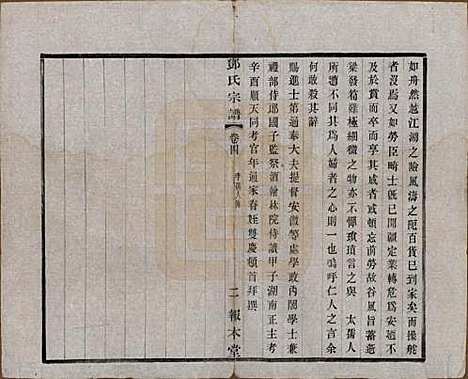 如舟然越江湖之險風濤之阨百貨已到家矣而操舵
者沒焉又如勞臣畸士旣已開疆定業轉危爲安追
及於貴而卒而或者頓忘前勞故谷風旨旨蓄
梁發笱雖極細微之物亦不憚瑣瑣言之與 太孺人
所遭不同其爲人婦者之心則一也嗚呼仁人之言余
何敢殺其辭
賜進士第通奉大夫提督安徽等處學政內閣學士兼
禮部侍郎國子監祭酒翰林院侍讀甲子湖南正主考
辛酉順天同考官年通家眷姪雙慶頓首拜撰
鄭氏宗譜
卷四
二
報本堂